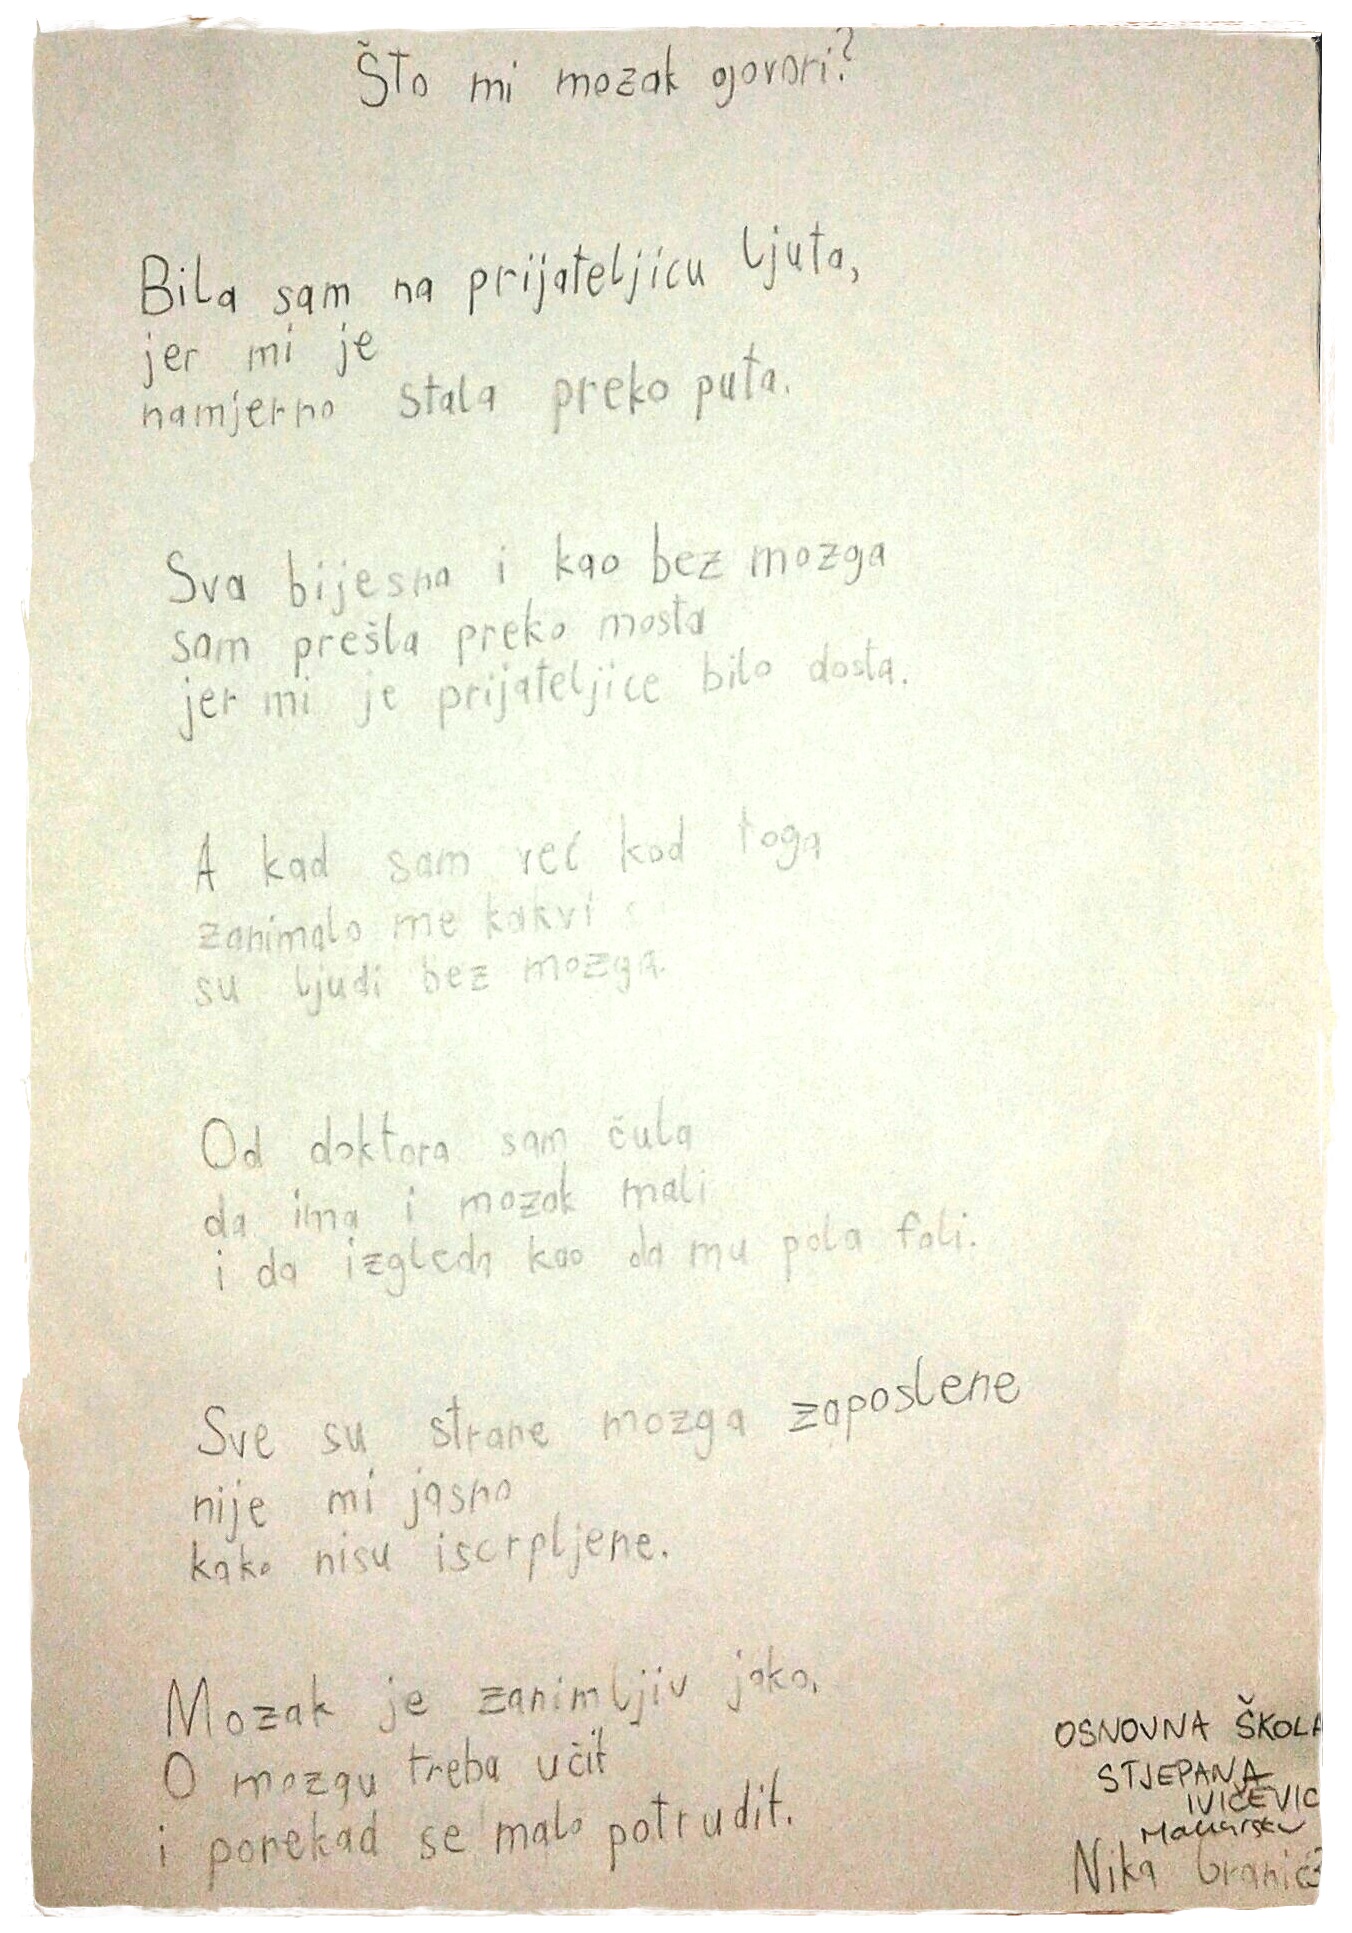 Što mi mozak govori?
Bila sam na prijateljicu ljuta,
jer mi je
namjerno stala preko puta.
Sva bijesna i kao bez mozga
sam prešla preko mosta
jer mi je prijateljice bilo dosta.
A kad sam već kod toga
zanimalo me kakvi s
su ljudi bez mozga.
Od doktora sam čula
da ima i mozak mali
i da izgleda kao da mu pola fali.
Sve su strane mozga zaposlene
nije mi jasno
kako nisu iscrpljene.
Mozak je zanimljiv jako,
O mozgu treba učit
i ponekad se malo potrudit.
OSNOVNA ŠKOLA
STJEPANA
IVIČEVIĆ
Makarska
Nika Granić